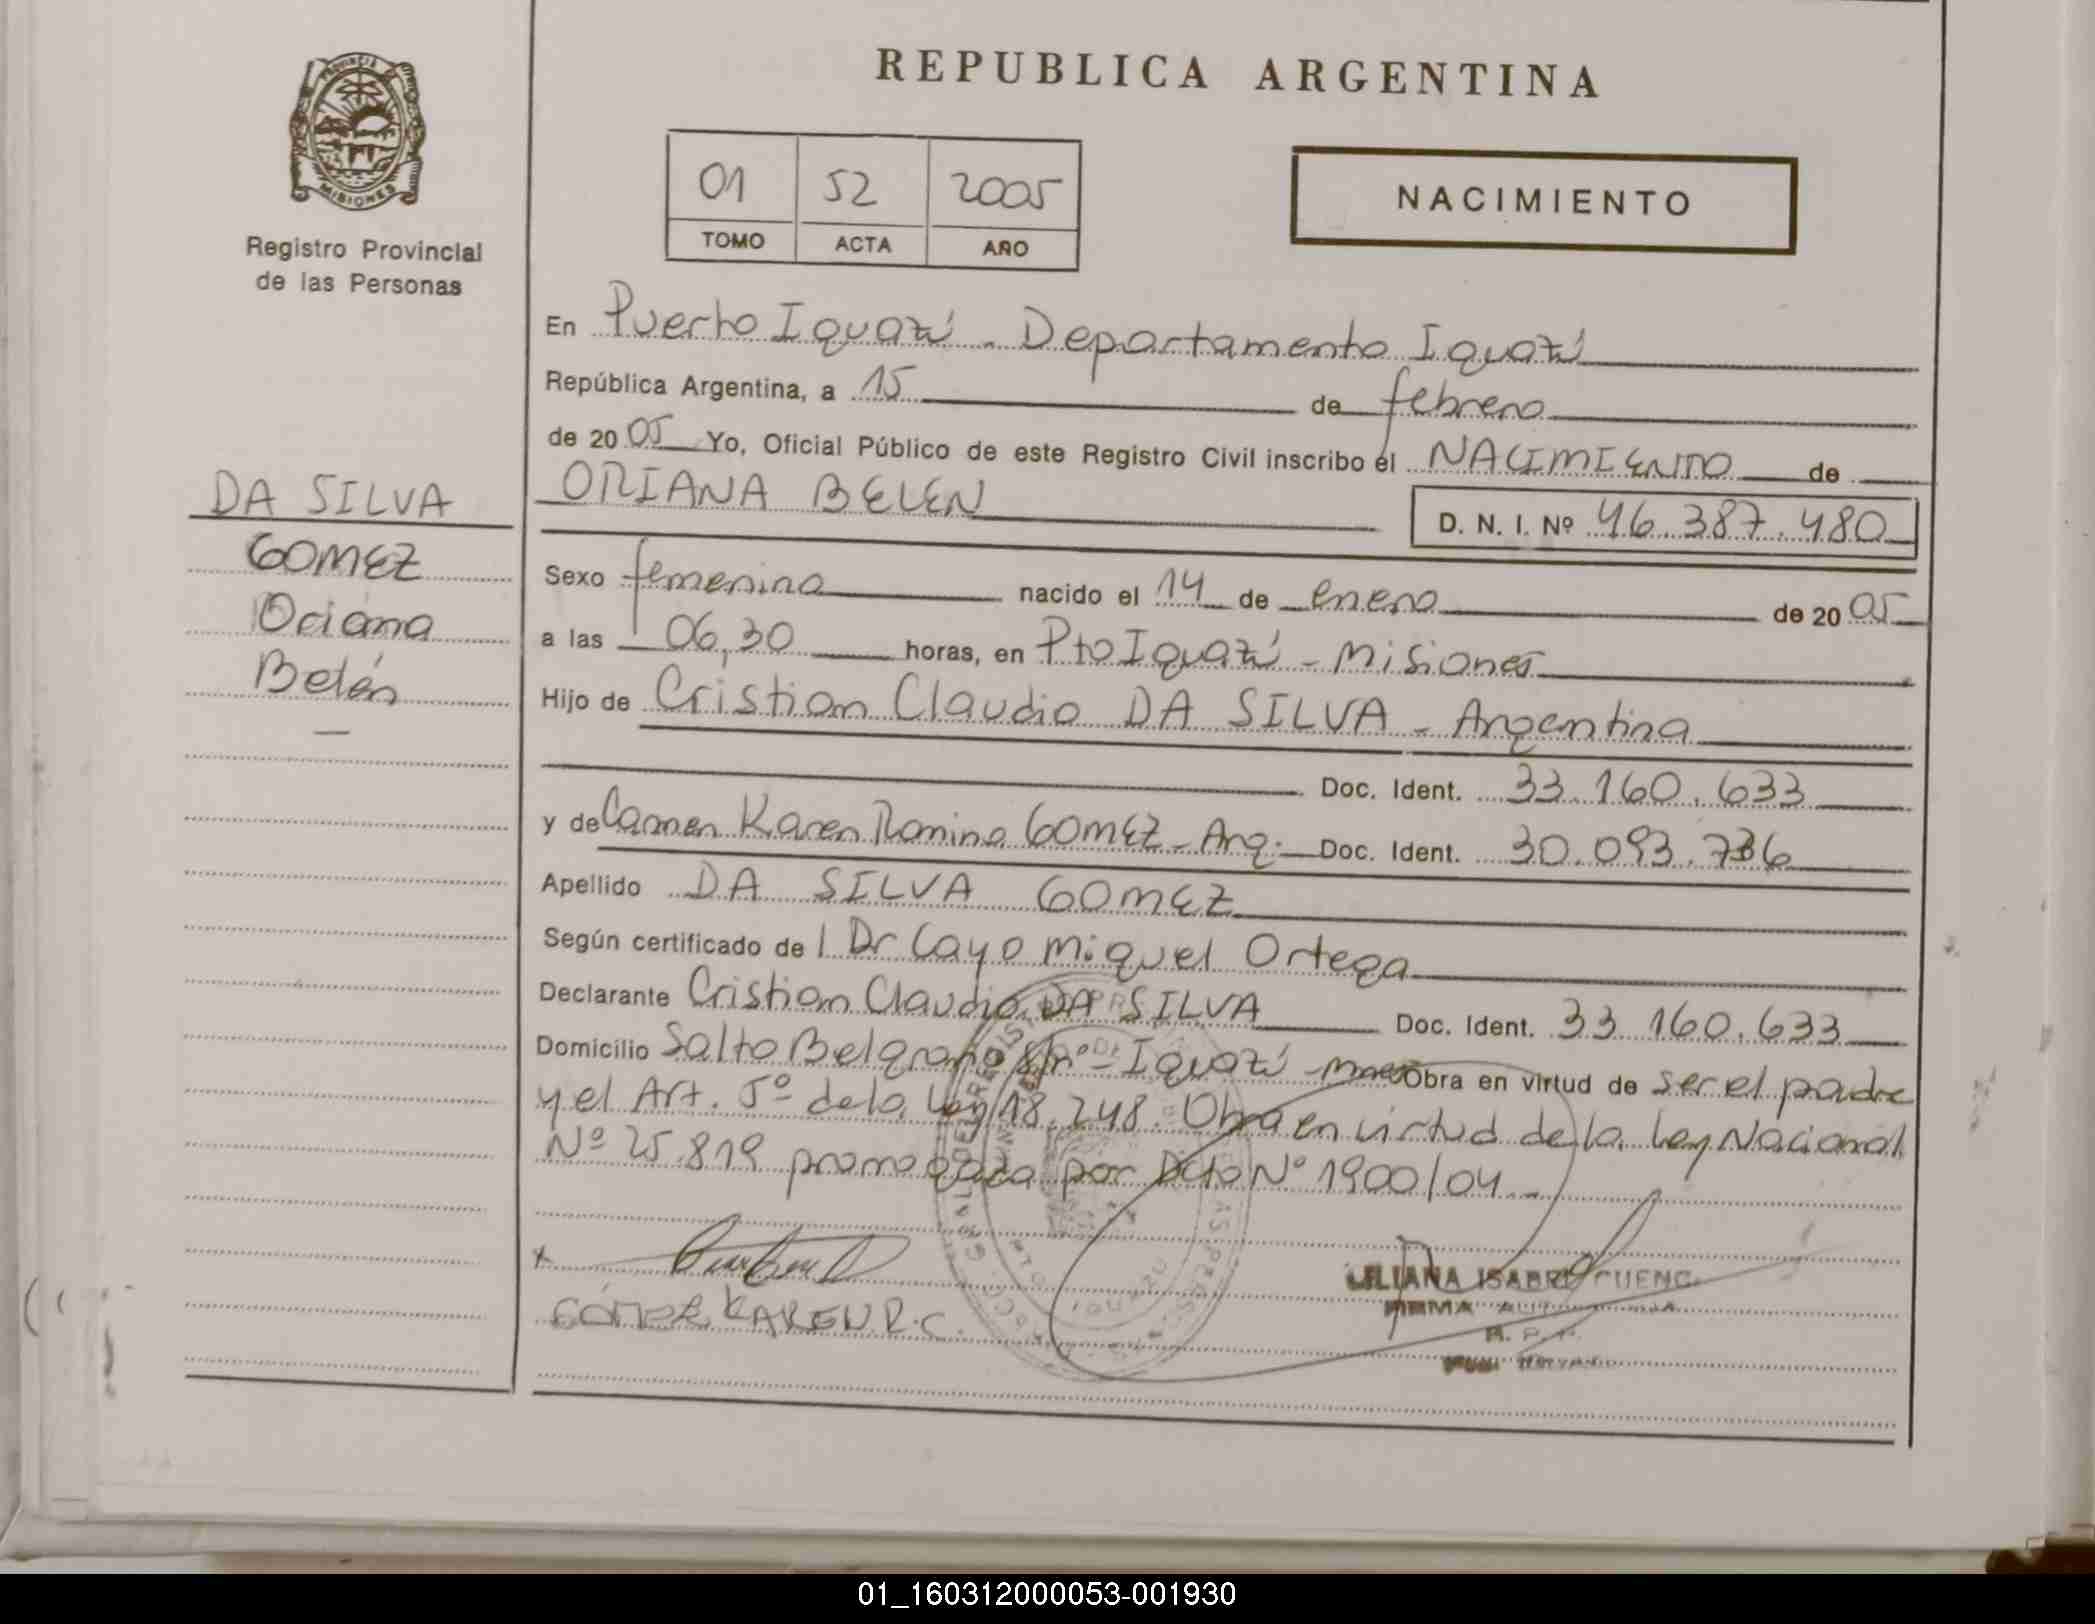 REPUBLICA ARGENTINA
PROVINCIA DE
MISIONES
Registro Provincial
de las Personas
01 52 2005
TOMO ACTA AÑO
NACIMIENTO
En Puerto Iguazú - Departamento Iguazú
República Argentina, a 15 de febrero
de 2005 Yo, Oficial Público de este Registro Civil inscribo el NACIMIENTO de
ORIANA BELEN
D. N. I. Nº 46.387.480
DA SILVA
GOMEZ
Oriana
Belén
Sexo femenina nacido el 14 de enero de 2005
a las 06,30 horas, en Pto Iguazú - Misiones
Hijo de Cristian Claudio DA SILVA - Argentina
Doc. Ident. 33.160.633
y de Carmen Karen Romina GOMEZ - Arg. Doc. Ident. 30.093.736
Apellido DA SILVA GOMEZ
Según certificado de l Dr Cayo Miguel Ortega
Declarante Cristian Claudio DA SILVA Doc. Ident. 33.160.633
Domicilio Salto Belgrano S/nº - Iguazú - Obra en virtud de ser el padre
y el Art. 5º de la Ley 18.248. Obra en virtud de la Ley Nacional
Nº 25.819 promogada por Dcto Nº 1900/04
x
GÓMEZ KAREN R.C.
LILIANA ISABEL CUENC
FIRMA
R. P. P.
01_160312000053-001930